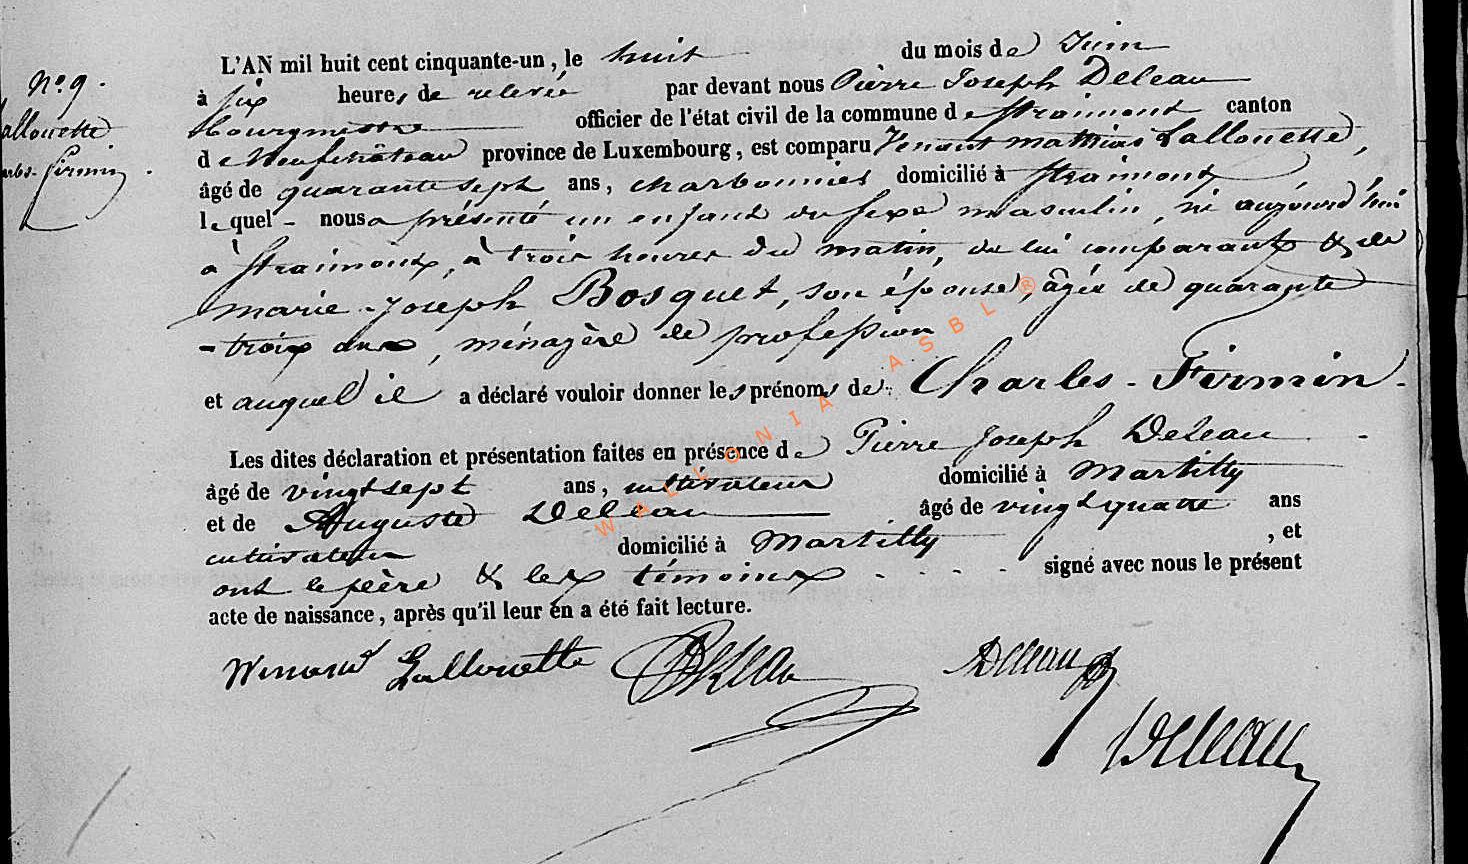 N.o 9.
Lallouette
Charles-Firmin.
L'AN mil huit cent cinquante-un, le huit du mois de Juin
à six heures de relevée par devant nous Pierre Joseph Deleau
bourgmestre officier de l'état civil de la commune de Straimont canton
de Neufchâteau province de Luxembourg, est comparu Venant mathias Lallouette,
âgé de quarante sept ans, charbonnier domicilié à Straimont
lequel - nous a présenté un enfant du sexe masculin, né aujourd'hui
à Straimont, à trois heures du matin, de lui comparant & de
marie-Joseph Bosquet, son épouse, âgée de quarante
-trois ans, ménagère de profession
et auquel il a déclaré vouloir donner les prénoms de Charles-Firmin-
Les dites déclaration et présentation faites en présence de Pierre Joseph Deleau
âgé de vingt sept ans, cultivateur domicilié à Martilly
et de Auguste Deleau âgé de vingt quatre ans
cultivateur domicilié à Martilly, et
ont le père & les témoins signé avec nous le présent
acte de naissance, après qu'il leur en a été fait lecture.
Winand Lallouette Deleau ADeleau
Deleau
WALLONIA ASBL ®